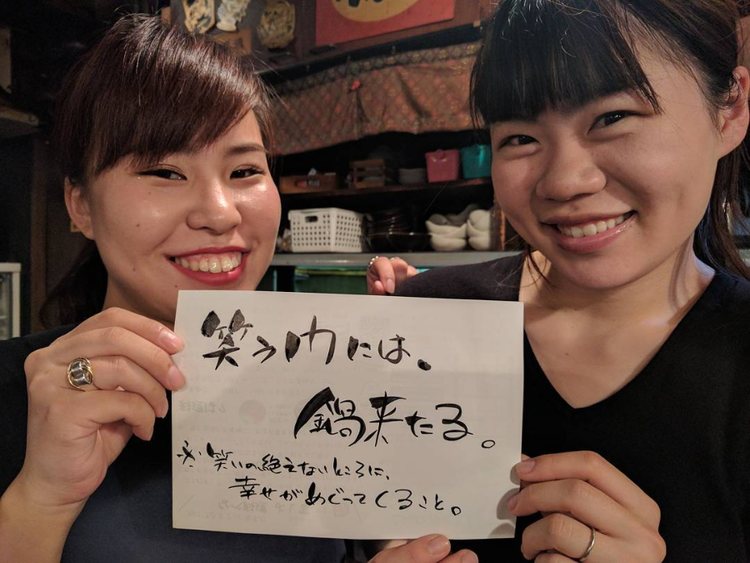 笑う内には、
鍋来たる。
※笑いの絶えないところに、
幸せがめぐってくること。